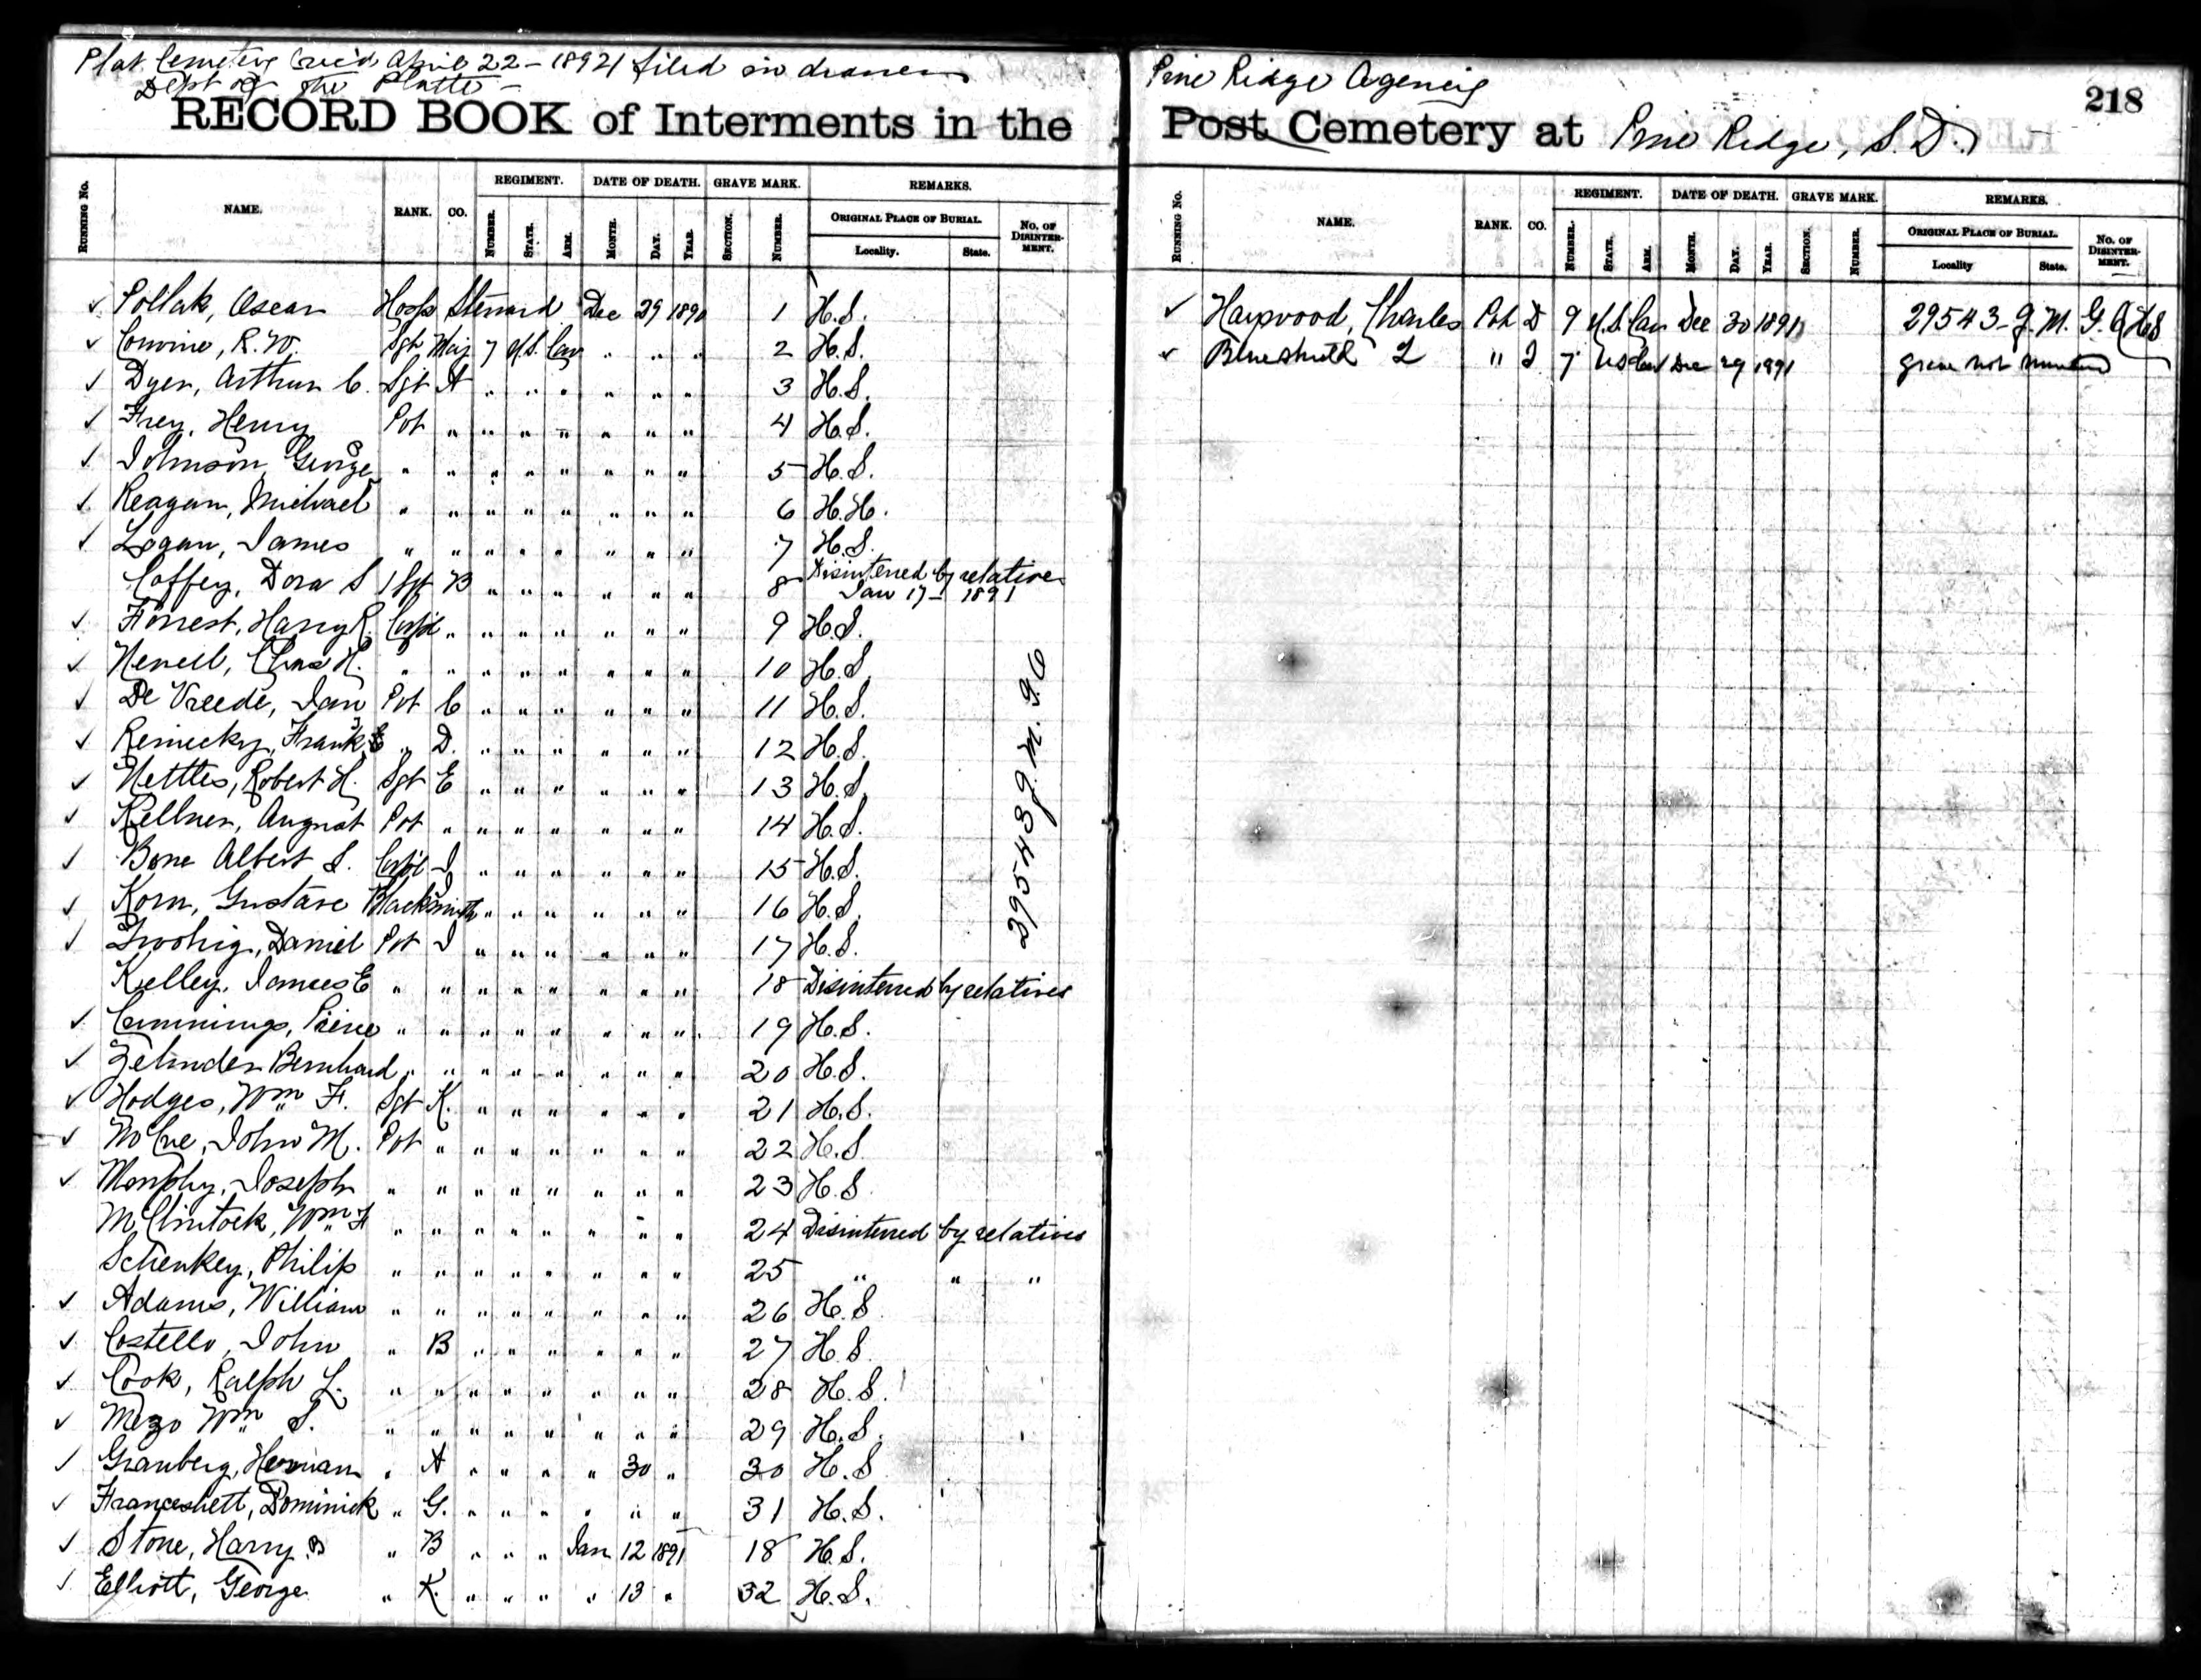 Plat Cemetery rec'd April 22 - 1892 filed in drawer
Dept of the Platte -
RECORD BOOK of Interments in the
RUNNING No. NAME. RANK. CO. REGIMENT. NUMBER. STATE. ARM. DATE OF DEATH. MONTH. DAY. YEAR. GRAVE MARK. SECTION. NUMBER. REMARKS. ORIGINAL PLACE OF BURIAL. Locality. State. No. OF DISINTERMENT.
✓ Pollak, Oscar Hosp Steward Dec 29 1890 1 H.S.
✓ Corwine, R.W. Sgt Maj 7 U.S. Cav " " " 2 H.S.
✓ Dyer, Arthur C. Sgt A " " " " " " 3 H.S.
✓ Frey, Henry Pvt " " " " " " " 4 H.S.
✓ Johnson, George " " " " " " " " 5 H.S.
✓ Reagan, Michael " " " " " " " " 6 H.H.
✓ Logan, James " " " " " " " " 7 H.S.
Coffey, Dora S 1 Sgt B " " " " " " 8 Disinterred by relatives
Jan 17 - 1891
✓ Forrest, Harry R. Corp'l " " " " " " " 9 H.S.
✓ Newell, Chas H. " " " " " " " " 10 H.S.
✓ De Vreede, Jan Pvt C " " " " " " 11 H.S.
✓ Reinecky, Frank E " D. " " " " " " 12 H.S.
✓ Nettles, Robert H. Sgt E " " " " " " 13 H.S.
✓ Kellner, August Pvt " " " " " " " 14 H.S.
✓ Bone Albert S. Corp'l I " " " " " " 15 H.S.
✓ Korn, Gustave Blacksmith " " " " " " 16 H.S.
✓ Twohig, Daniel Pvt I " " " " " " 17 H.S.
Kelley, James E " " " " " " " " 18 Disinterred by relatives
✓ Cummings, Pierce " " " " " " " " 19 H.S.
✓ Zehnder Bernhard " " " " " " " " 20 H.S.
✓ Hodges, Wm F. Sgt K. " " " " " " 21 H.S.
✓ McCue, John M. Pvt " " " " " " " 22 H.S.
✓ Murphy, Joseph " " " " " " " " 23 H.S.
McClintock, Wm F " " " " " " " " 24 Disinterred by relatives
Schenkey, Philip " " " " " " " " 25 " " "
✓ Adams, William " " " " " " " " 26 H.S.
✓ Costello, John " B " " " " " " 27 H.S.
✓ Cook, Ralph L. " " " " " " " " 28 H.S.
✓ Mezo Wm S. " " " " " " " " 29 H.S.
✓ Granberg, Herman " A " " " " 30 " 30 H.S.
✓ Franceshett, Dominick " G. " " " " " " 31 H.S.
✓ Stone, Harry B " B " " " Jan 12 1891 18 H.S.
✓ Elliott, George " K. " " " " 13 " 32 H.S.
29543 Q.M.G.O
Pine Ridge Agency
218
Post Cemetery at Pine Ridge, S.D.
RUNNING No. NAME. RANK. CO. REGIMENT. NUMBER. STATE. ARM. DATE OF DEATH. MONTH. DAY. YEAR. GRAVE MARK. SECTION. NUMBER. REMARKS. ORIGINAL PLACE OF BURIAL. Locality State. No. OF DISINTERMENT.
✓ Haywood, Charles Pvt D 9 U.S. Cav Dec 30 1891 29543 Q.M.G.O H.S
✓ " 7 US Cav Dec 29 1891 grave not numbered